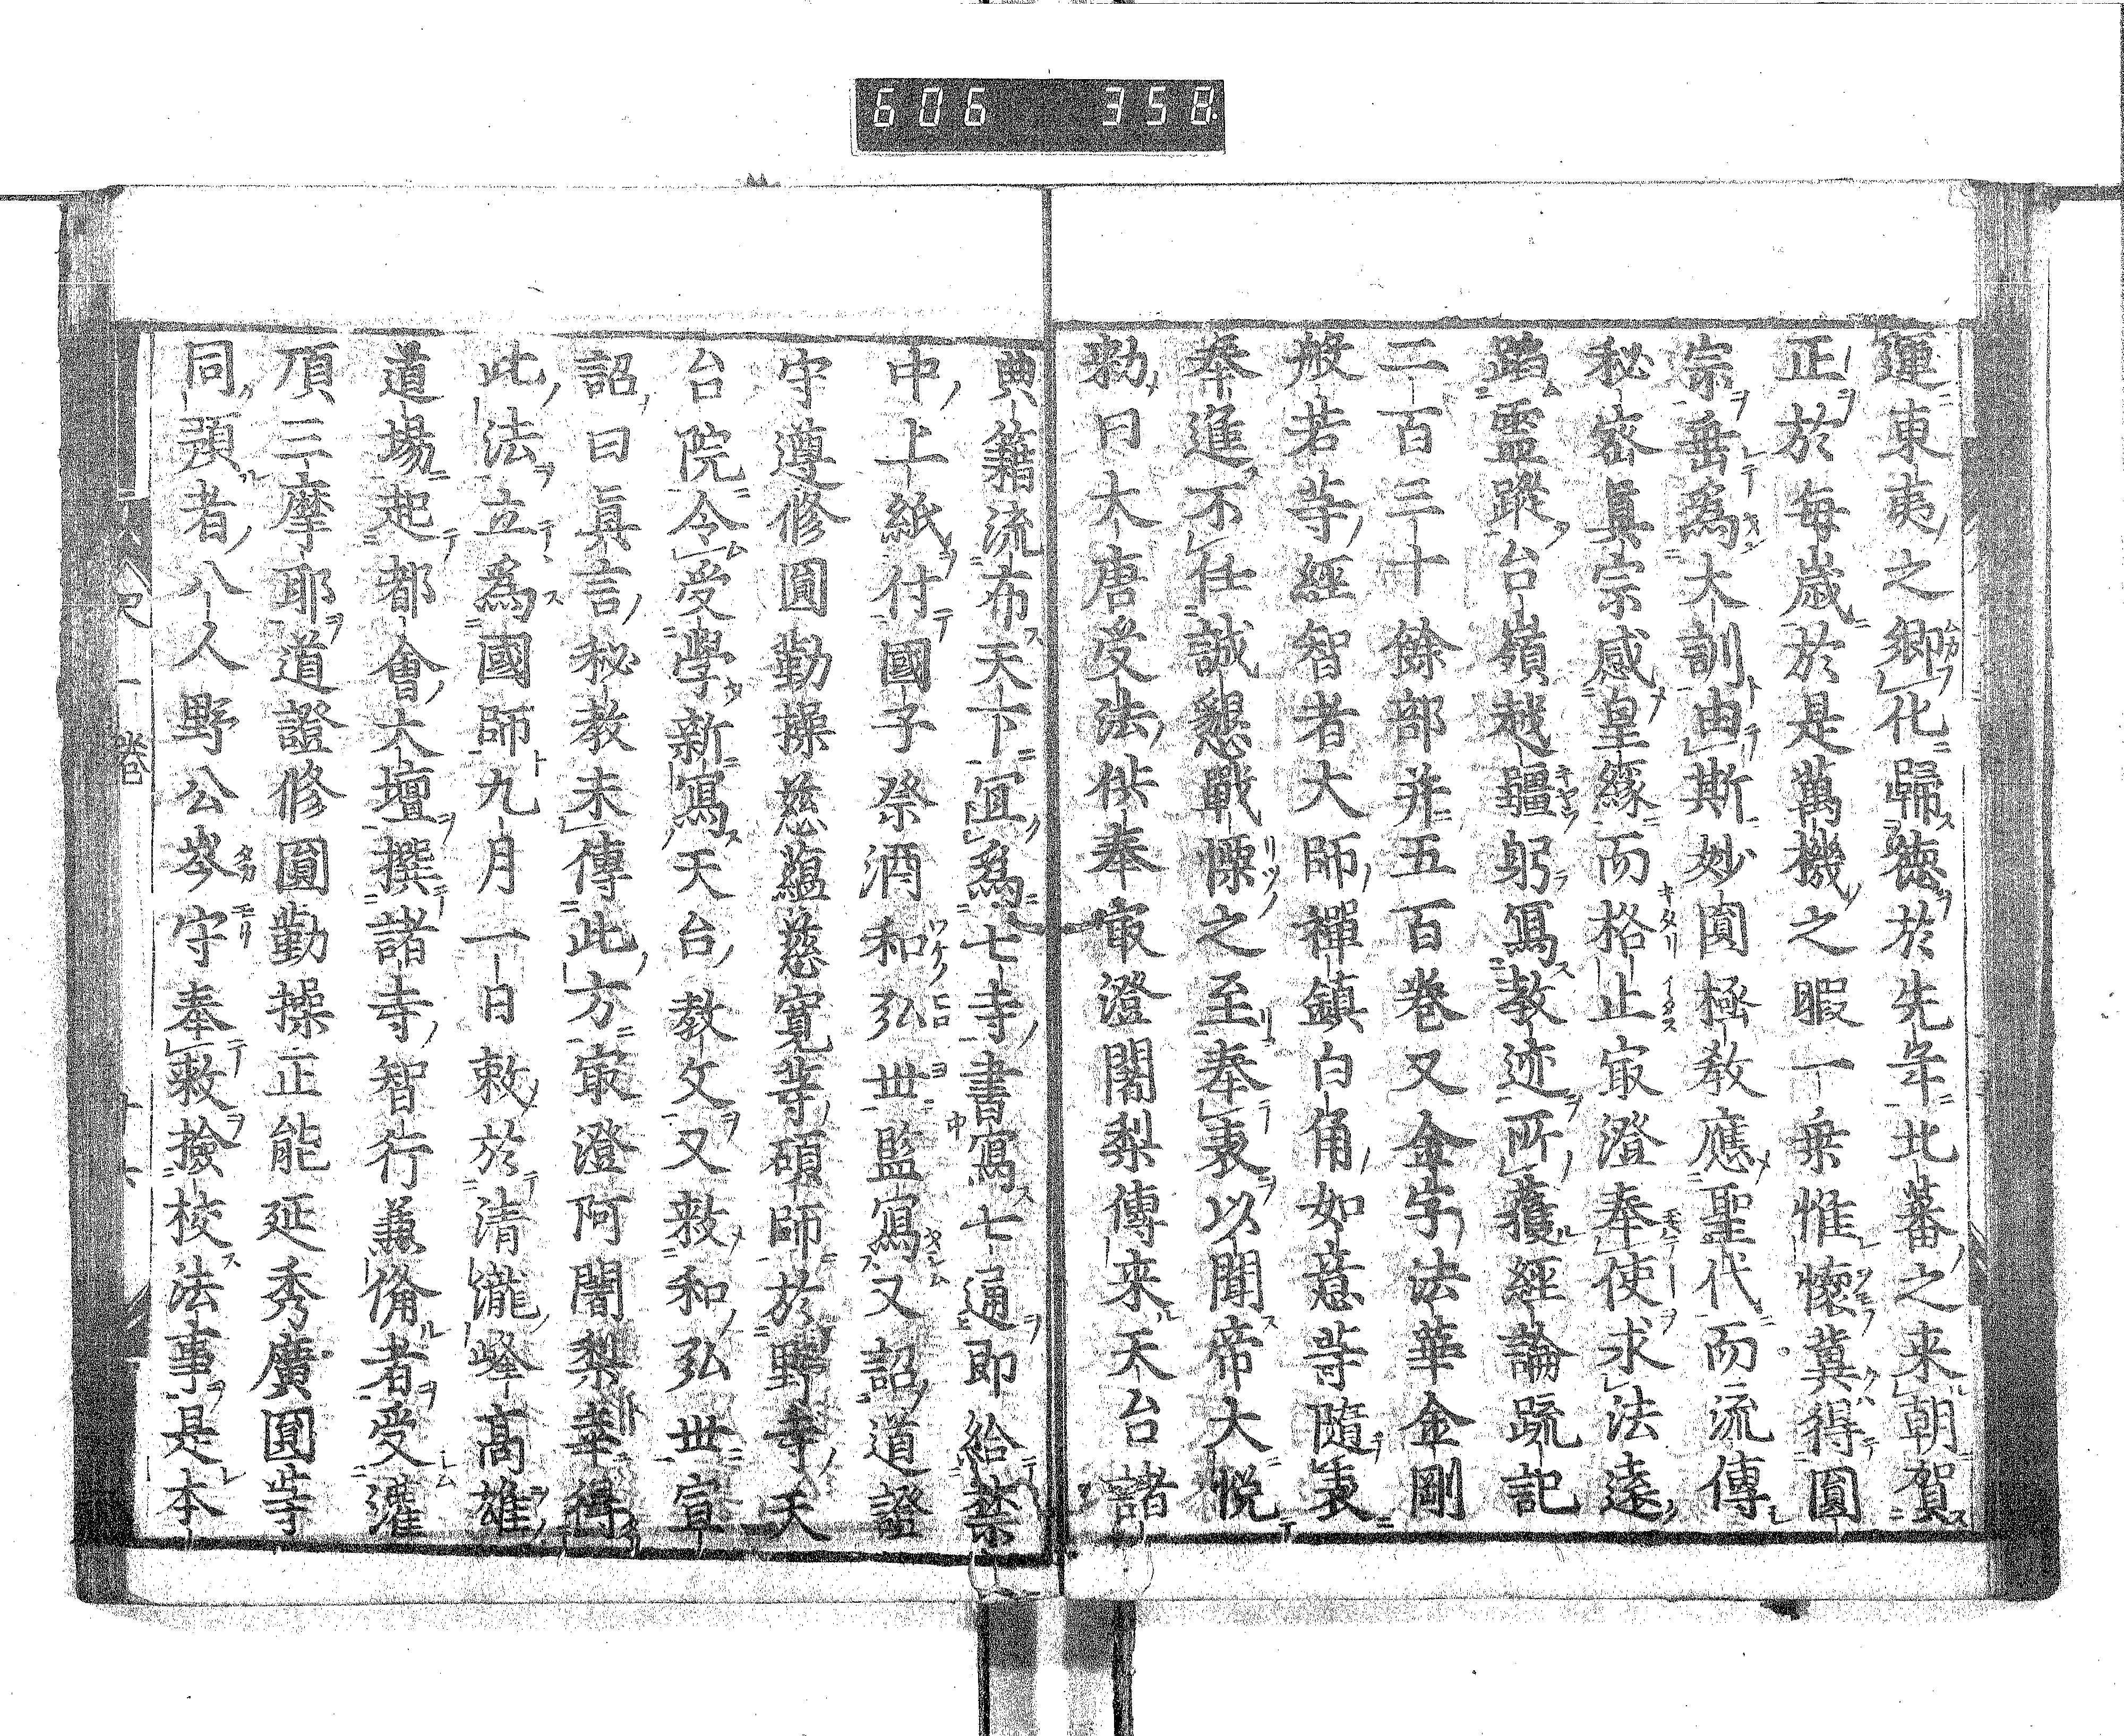 606 358
運東夷之鄉化歸德於先年北蕃之来朝賀
正於每歲於是萬機之暇一乗惟懷冀得圓
宗垂爲大訓由斯妙圓極教應聖代而流傳
秘密眞宗感皇緣而格止㝡澄奉使求法遠
蹈靈蹤台嶺越疆躬寫教迹所獲經論疏記
二百三十餘部并五百卷又金字法華金剛
般若等經智者大師禪鎮白角如意等隨表
奉進不任誠懇戰慄之至奉表以聞帝大悦
勅曰大唐受法供奉㝡澄闍梨傳来天台諸
典籍流布天下宜爲七寺書寫七通即給禁
中上紙付國子祭酒和弘世監寫又詔道證
守遵修圓勤操慈蘊慈寛等碩師於野寺天
台院令受學新寫天台教文又敕和弘世宣
詔曰眞言秘教未傳此方㝡澄阿闍梨幸得
此法立爲國師九月一日敕於清瀧峰高雄
道場起都會大壇撰諸寺智行兼俻者受灌
頂三摩耶道證修圓勤操正能延秀廣圓等
同預者八人野公岑守奉敕撿校法事是本